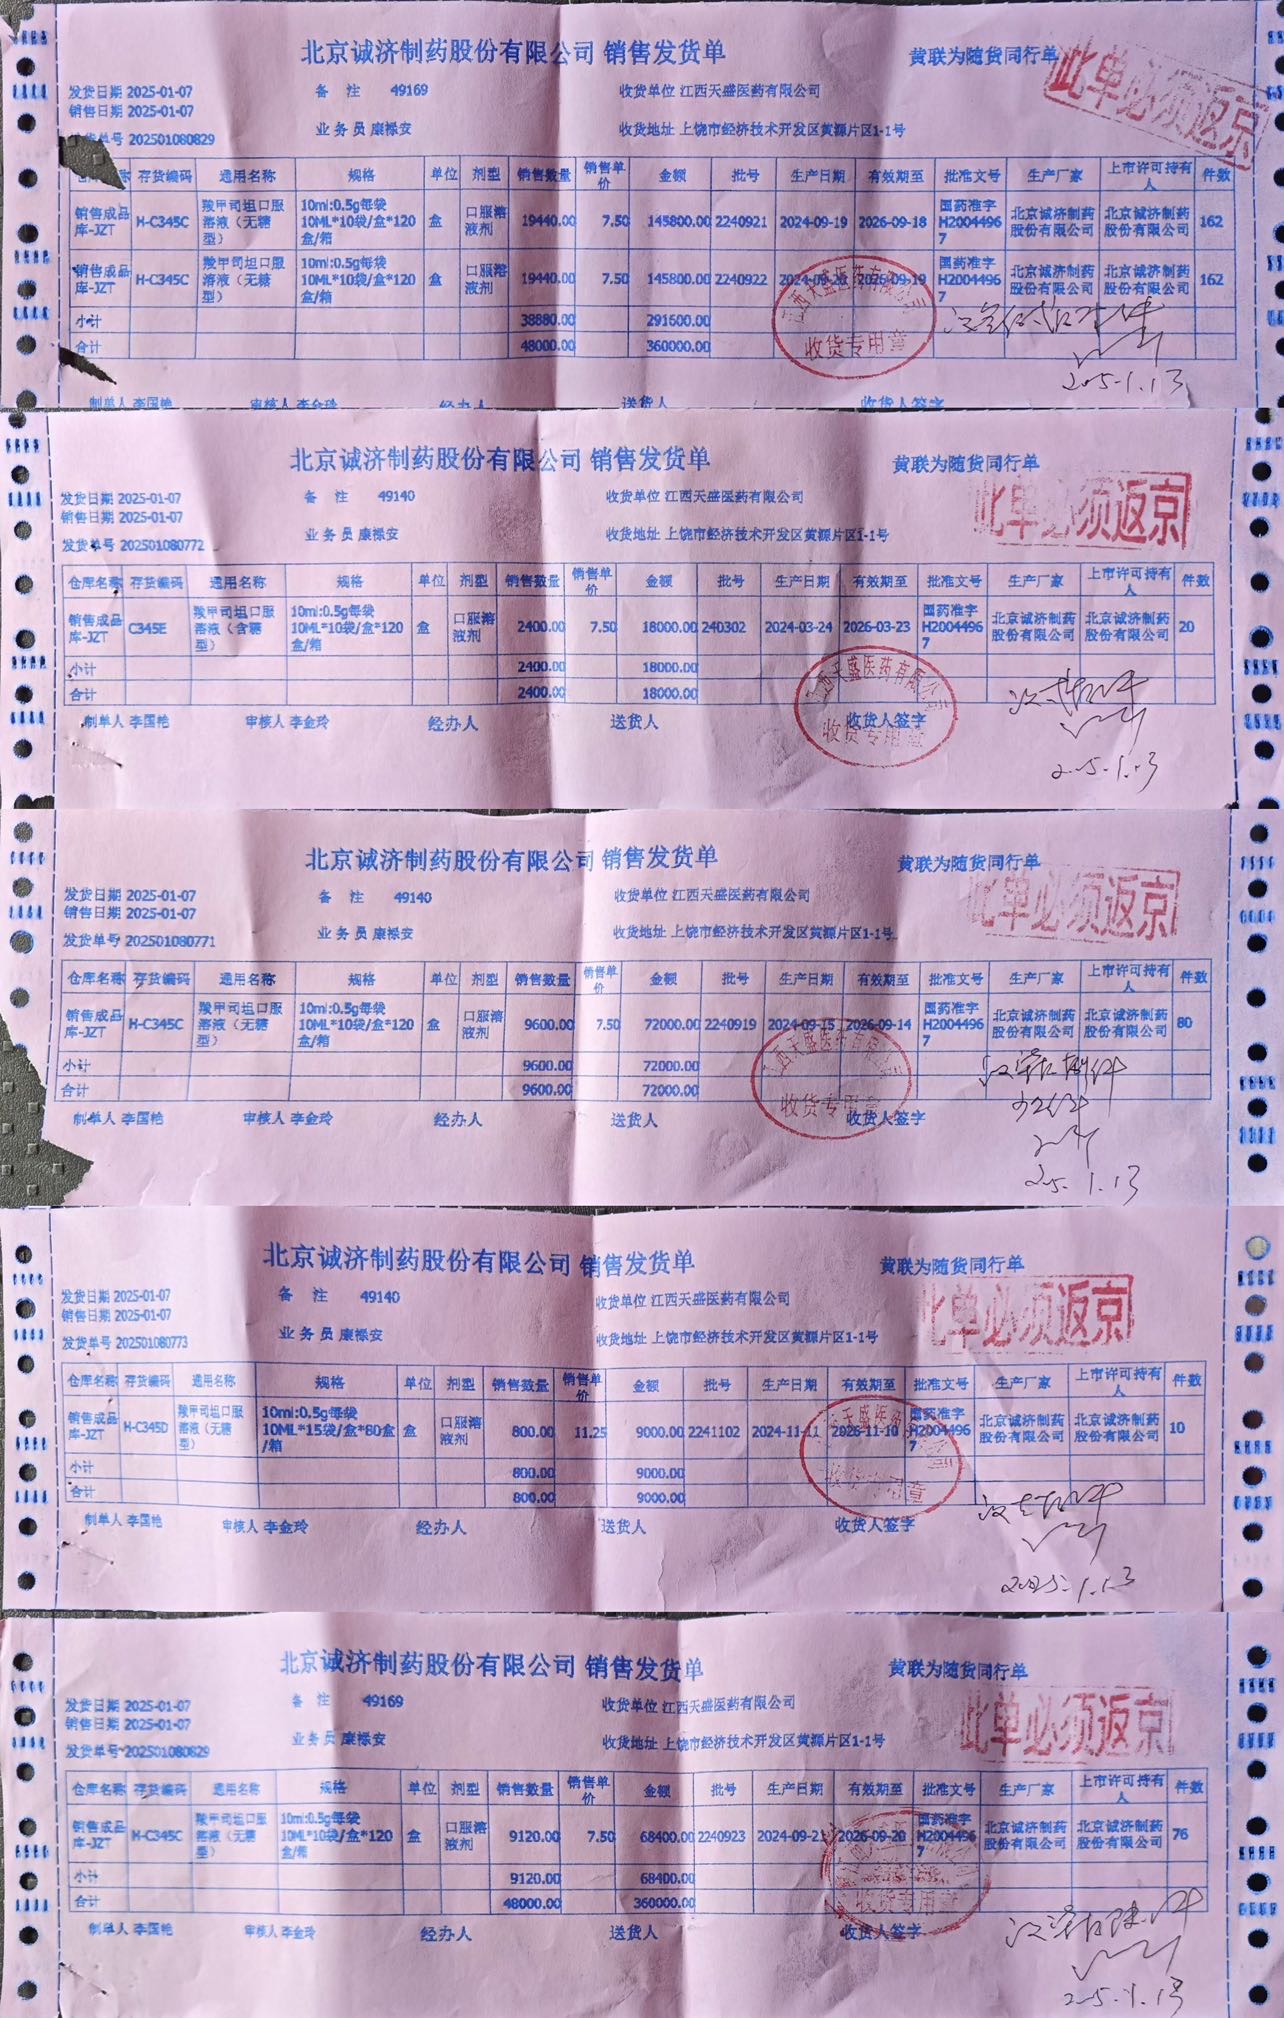 北京诚济制药股份有限公司 销售发货单 黄联为随货同行单
此单必须返京
发货日期 2025-01-07 备 注 49169 收货单位 江西天盛医药有限公司
销售日期 2025-01-07
货单号 202501080829 业务员 康禄安 收货地址 上饶市经济技术开发区黄源片区1-1号
称 存货编码 通用名称 规格 单位 剂型 销售数量 销售单价 金额 批号 生产日期 有效期至 批准文号 生产厂家 上市许可持有人 件数
销售成品库-JZT H-C345C 羧甲司坦口服溶液（无糖型） 10ml:0.5g每袋 10ML*10袋/盒*120盒/箱 盒 口服溶液剂 19440.00 7.50 145800.00 2240921 2024-09-19 2026-09-18 国药准字H20044967 北京诚济制药股份有限公司 北京诚济制药股份有限公司 162
销售成品库-JZT H-C345C 羧甲司坦口服溶液（无糖型） 10ml:0.5g每袋 10ML*10袋/盒*120盒/箱 盒 口服溶液剂 19440.00 7.50 145800.00 2240922 2024-09-20 2026-09-19 国药准字H20044967 北京诚济制药股份有限公司 北京诚济制药股份有限公司 162
小计 38880.00 291600.00
合计 48000.00 360000.00
江西天盛医药有限公司
收货专用章
2025-1.13
制单人 李国艳 审核人 李金玲 经办人 送货人 收货人签字
北京诚济制药股份有限公司 销售发货单 黄联为随货同行单
此单必须返京
发货日期 2025-01-07 备 注 49140 收货单位 江西天盛医药有限公司
销售日期 2025-01-07
发货单号 202501080772 业务员 康禄安 收货地址 上饶市经济技术开发区黄源片区1-1号
仓库名称 存货编码 通用名称 规格 单位 剂型 销售数量 销售单价 金额 批号 生产日期 有效期至 批准文号 生产厂家 上市许可持有人 件数
销售成品库-JZT C345E 羧甲司坦口服溶液（含糖型） 10ml:0.5g每袋 10ML*10袋/盒*120盒/箱 盒 口服溶液剂 2400.00 7.50 18000.00 240302 2024-03-24 2026-03-23 国药准字H20044967 北京诚济制药股份有限公司 北京诚济制药股份有限公司 20
小计 2400.00 18000.00
合计 2400.00 18000.00
江西天盛医药有限公司
收货专用章
制单人 李国艳 审核人 李金玲 经办人 送货人 收货人签字
2025-1.13
北京诚济制药股份有限公司 销售发货单 黄联为随货同行单
此单必须返京
发货日期 2025-01-07 备 注 49140 收货单位 江西天盛医药有限公司
销售日期 2025-01-07
发货单号 202501080771 业务员 康禄安 收货地址 上饶市经济技术开发区黄源片区1-1号
仓库名称 存货编码 通用名称 规格 单位 剂型 销售数量 销售单价 金额 批号 生产日期 有效期至 批准文号 生产厂家 上市许可持有人 件数
销售成品库-JZT H-C345C 羧甲司坦口服溶液（无糖型） 10ml:0.5g每袋 10ML*10袋/盒*120盒/箱 盒 口服溶液剂 9600.00 7.50 72000.00 2240919 2024-09-15 2026-09-14 国药准字H20044967 北京诚济制药股份有限公司 北京诚济制药股份有限公司 80
小计 9600.00 72000.00
合计 9600.00 72000.00
江西天盛医药有限公司
收货专用章
制单人 李国艳 审核人 李金玲 经办人 送货人 收货人签字
北京诚济制药股份有限公司 销售发货单 黄联为随货同行单
此单必须返京
发货日期 2025-01-07 备 注 49140 收货单位 江西天盛医药有限公司
销售日期 2025-01-07
发货单号 202501080773 业务员 康禄安 收货地址 上饶市经济技术开发区黄源片区1-1号
仓库名称 存货编码 通用名称 规格 单位 剂型 销售数量 销售单价 金额 批号 生产日期 有效期至 批准文号 生产厂家 上市许可持有人 件数
销售成品库-JZT H-C345D 羧甲司坦口服溶液（无糖型） 10ml:0.5g每袋 10ML*15袋/盒*80盒/箱 盒 口服溶液剂 800.00 11.25 9000.00 2241102 2024-11-11 2026-11-10 国药准字H20044967 北京诚济制药股份有限公司 北京诚济制药股份有限公司 10
小计 800.00 9000.00
合计 800.00 9000.00
制单人 李国艳 审核人 李金玲 经办人 送货人 收货人签字
2025-1.13
北京诚济制药股份有限公司 销售发货单 黄联为随货同行单
此单必须返京
发货日期 2025-01-07 备 注 49169 收货单位 江西天盛医药有限公司
销售日期 2025-01-07
发货单号 202501080829 业务员 康禄安 收货地址 上饶市经济技术开发区黄源片区1-1号
仓库名称 存货编码 通用名称 规格 单位 剂型 销售数量 销售单价 金额 批号 生产日期 有效期至 批准文号 生产厂家 上市许可持有人 件数
销售成品库-JZT H-C345C 羧甲司坦口服溶液（无糖型） 10ml:0.5g每袋 10ML*10袋/盒*120盒/箱 盒 口服溶液剂 9120.00 7.50 68400.00 2240923 2024-09-21 2026-09-20 国药准字H20044967 北京诚济制药股份有限公司 北京诚济制药股份有限公司 76
小计 9120.00 68400.00
合计 48000.00 360000.00
收货专用章
制单人 李国艳 审核人 李金玲 经办人 送货人 收货人签字